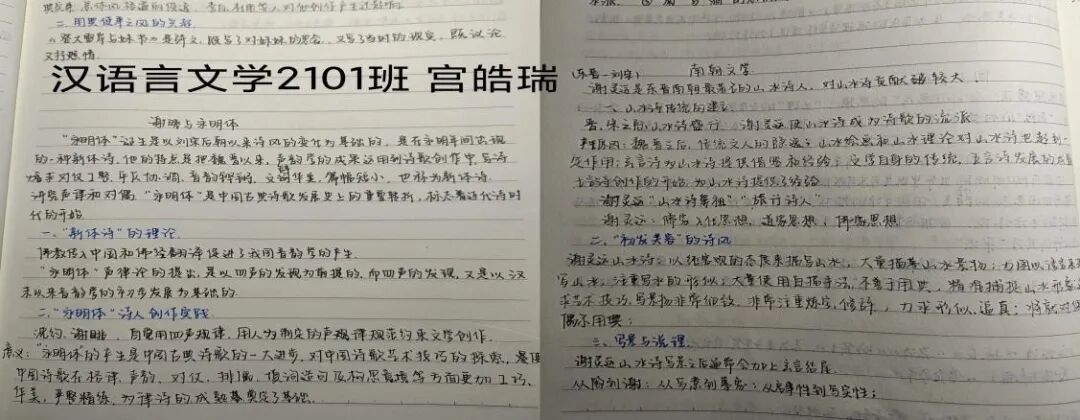 二、用典使事之风的兴起
《登大雷岸与妹书》是骈文，既写了对妹妹的思念，又写了当时的现实，既议论
又抒怀情。
汉语言文学2101班 宫皓瑞
谢朓与永明体
"永明体"诞生是以刘宋后期以来诗风的变化为基础的，是在永明年间出现
的一种新体诗，他的特点是把魏晋以来，声韵学的成果运用到诗歌创作中，写诗
讲求对仗工整，平仄协调，音韵铿锵，文词华美，篇幅短小，也称为新体诗
讲究声律和对偶。"永明体"是中国古典诗歌发展史上的重要转折，标志着近代诗时
代的开始
一、"新体诗"的理论
佛教传入中国和佛经翻译促进了我国音韵学的产生
"永明体"声律论的提出，是以四声的发现为前提的，而四声的发现，又是以汉
末以来音韵学的初步发展为基础的
二、"永明体"诗人创作实践
沈约、谢朓 自觉用四声规律，用人为制定的声规律规范约束文学创作
意义："永明体的产生是中国古典诗歌的一大进步，对中国诗歌艺术技巧的探索，
中国诗歌在格律、声韵、对仗、排偶、遣词造句及构思意境等方面更加工巧、
华美，严整精练，为律诗的成熟奠定了基础
(东晋—刘宋) 南朝文学
谢灵运是东晋南朝最著名的山水诗人，对山水诗贡献破较大
一、山水诗传统的建立
晋、宋之际山水诗盛行，谢灵运使山水诗成为诗歌的流派
产生原因：魏晋之后，传统文人的隐逸；山水绘画和山水理论对山水诗也起到一
定作用；玄言诗为山水诗提供借鉴和经验；文学自身的传统，玄言诗发展的
诗创作的开始，为山水诗提供了经验
谢灵运"山水诗鼻祖"、"旅行诗人"
谢灵运：儒家入仕思想，道家思想，佛家思想
二、"初发芙蓉"的诗风
谢灵运山水诗，以纯客观的态度来描写山水，大量描摹山水景物；力图以
写山水，注重写水的形似；大量使用白描手法，不善于用典，精准捕捉山水形
艺术技巧，写景物非常细致，非常注重炼字，修辞，力求形似，逼真；
偶尔用典；
三、写景与说理
谢灵运山水诗写景之后通常会加上玄言结尾
从陶到谢：从写意到摹象；从启事性到写实性；